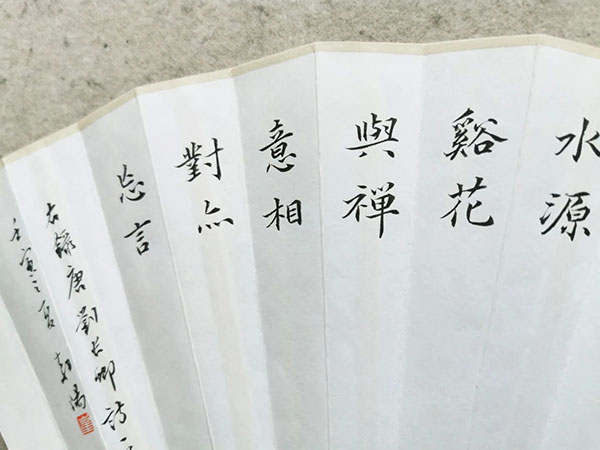 水源
谿花
與禪
意相
對亦
忘言
右錄唐劉長卿詩一
壬寅之夏